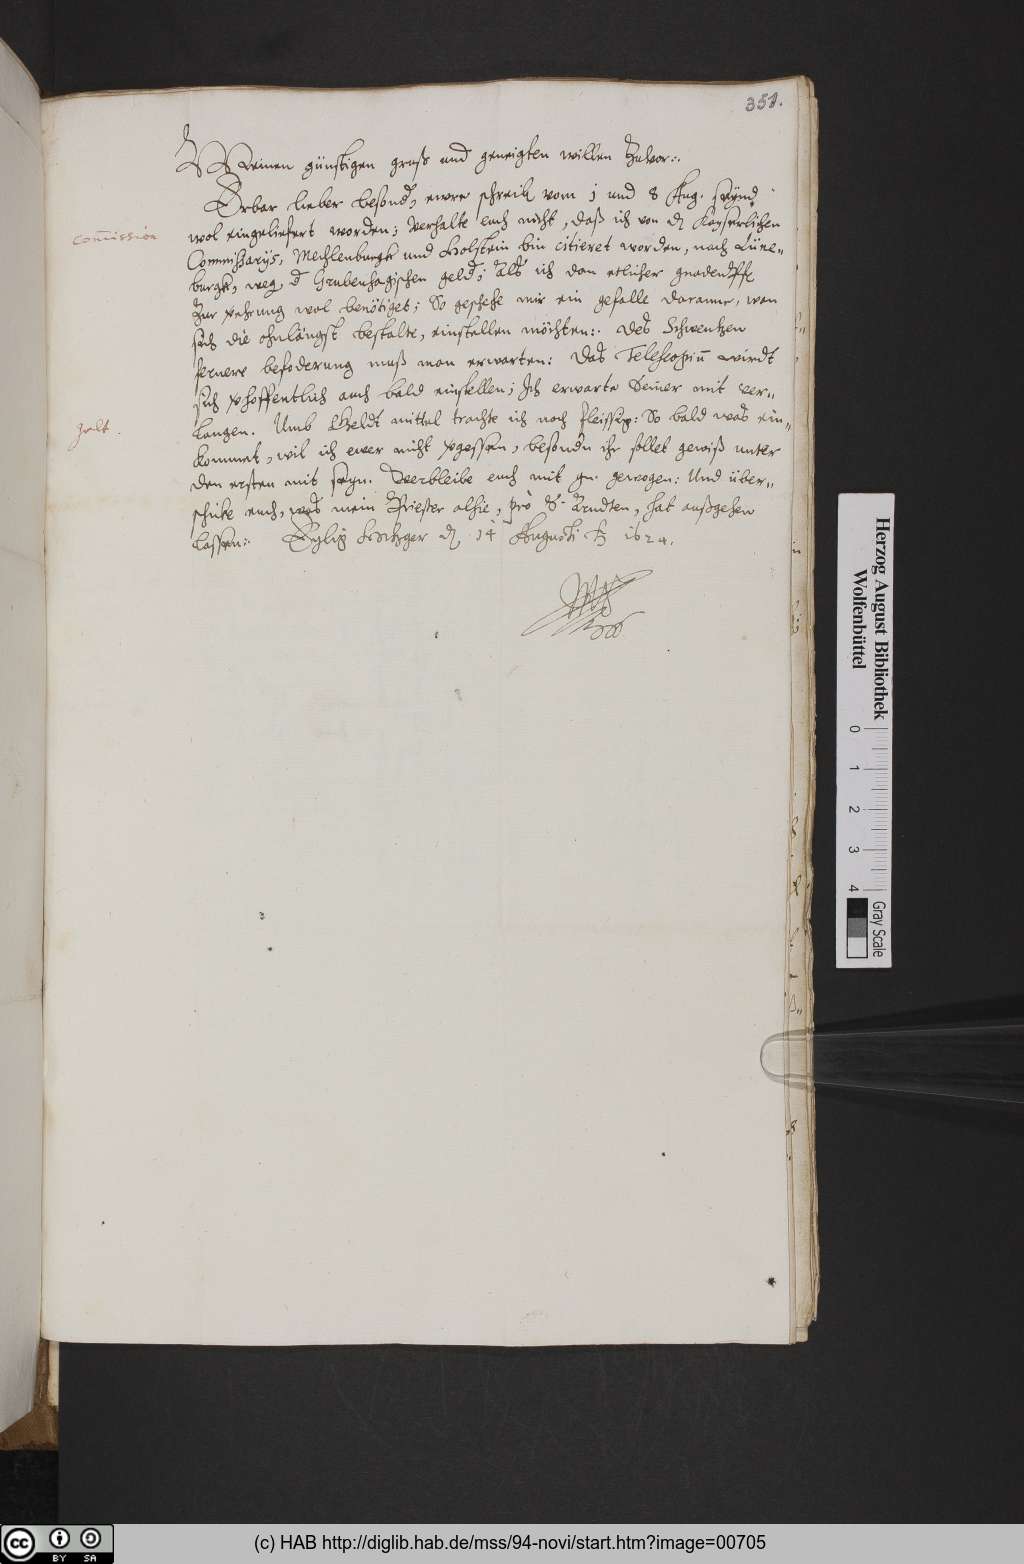 351.
Meinen günstigen gruß und geneigten willen zuvor:.
Erbar lieber besond, ewre schreib vom 1 und 8 Aug. seynd
wol eingeliefert worden; Verhalte euch nicht, daß ich von dn Kayserlichen
Commission
Commissarys, Mechlenburgk und Holstein bin citieret worden, nach Lüne„
burgk, weg. d Grubenhagischen geld; Als ich dan etlicher gnaden
zur zehrung wol benötiget; So geschehe mir ein gefalle daranne, wan
sich die ohnlängst bestalte, einstellen möchten:. Des Schwentzen
fernere befoderung muß man erwarten: Das Telescopiu wirdt
sich verhoffentlich auch bald einstellen; Ich erwarte Seiner mit ver„
langen. Umb Geldt mittel trachte ich noch fleissig: So bald was ein„
gelt.
kommet, wil ich ewer nicht vergessen, besondn ihr sollet gewiß unter
den ersten mit seyn. Verbleibe euch mit gn. gewogen: Und über„
schicke euch, was mein Priester alhie, pro D. Arndten, hat außgehen
lassen:. Hitzger dn 14 Augusti Ao 1624.
Herzog August Bibliothek
Wolfenbüttel
0 1 2 3 4
Gray Scale
cc BY SA
(c) HAB http://diglib.hab.de/mss/94-novi/start.htm?image=00705